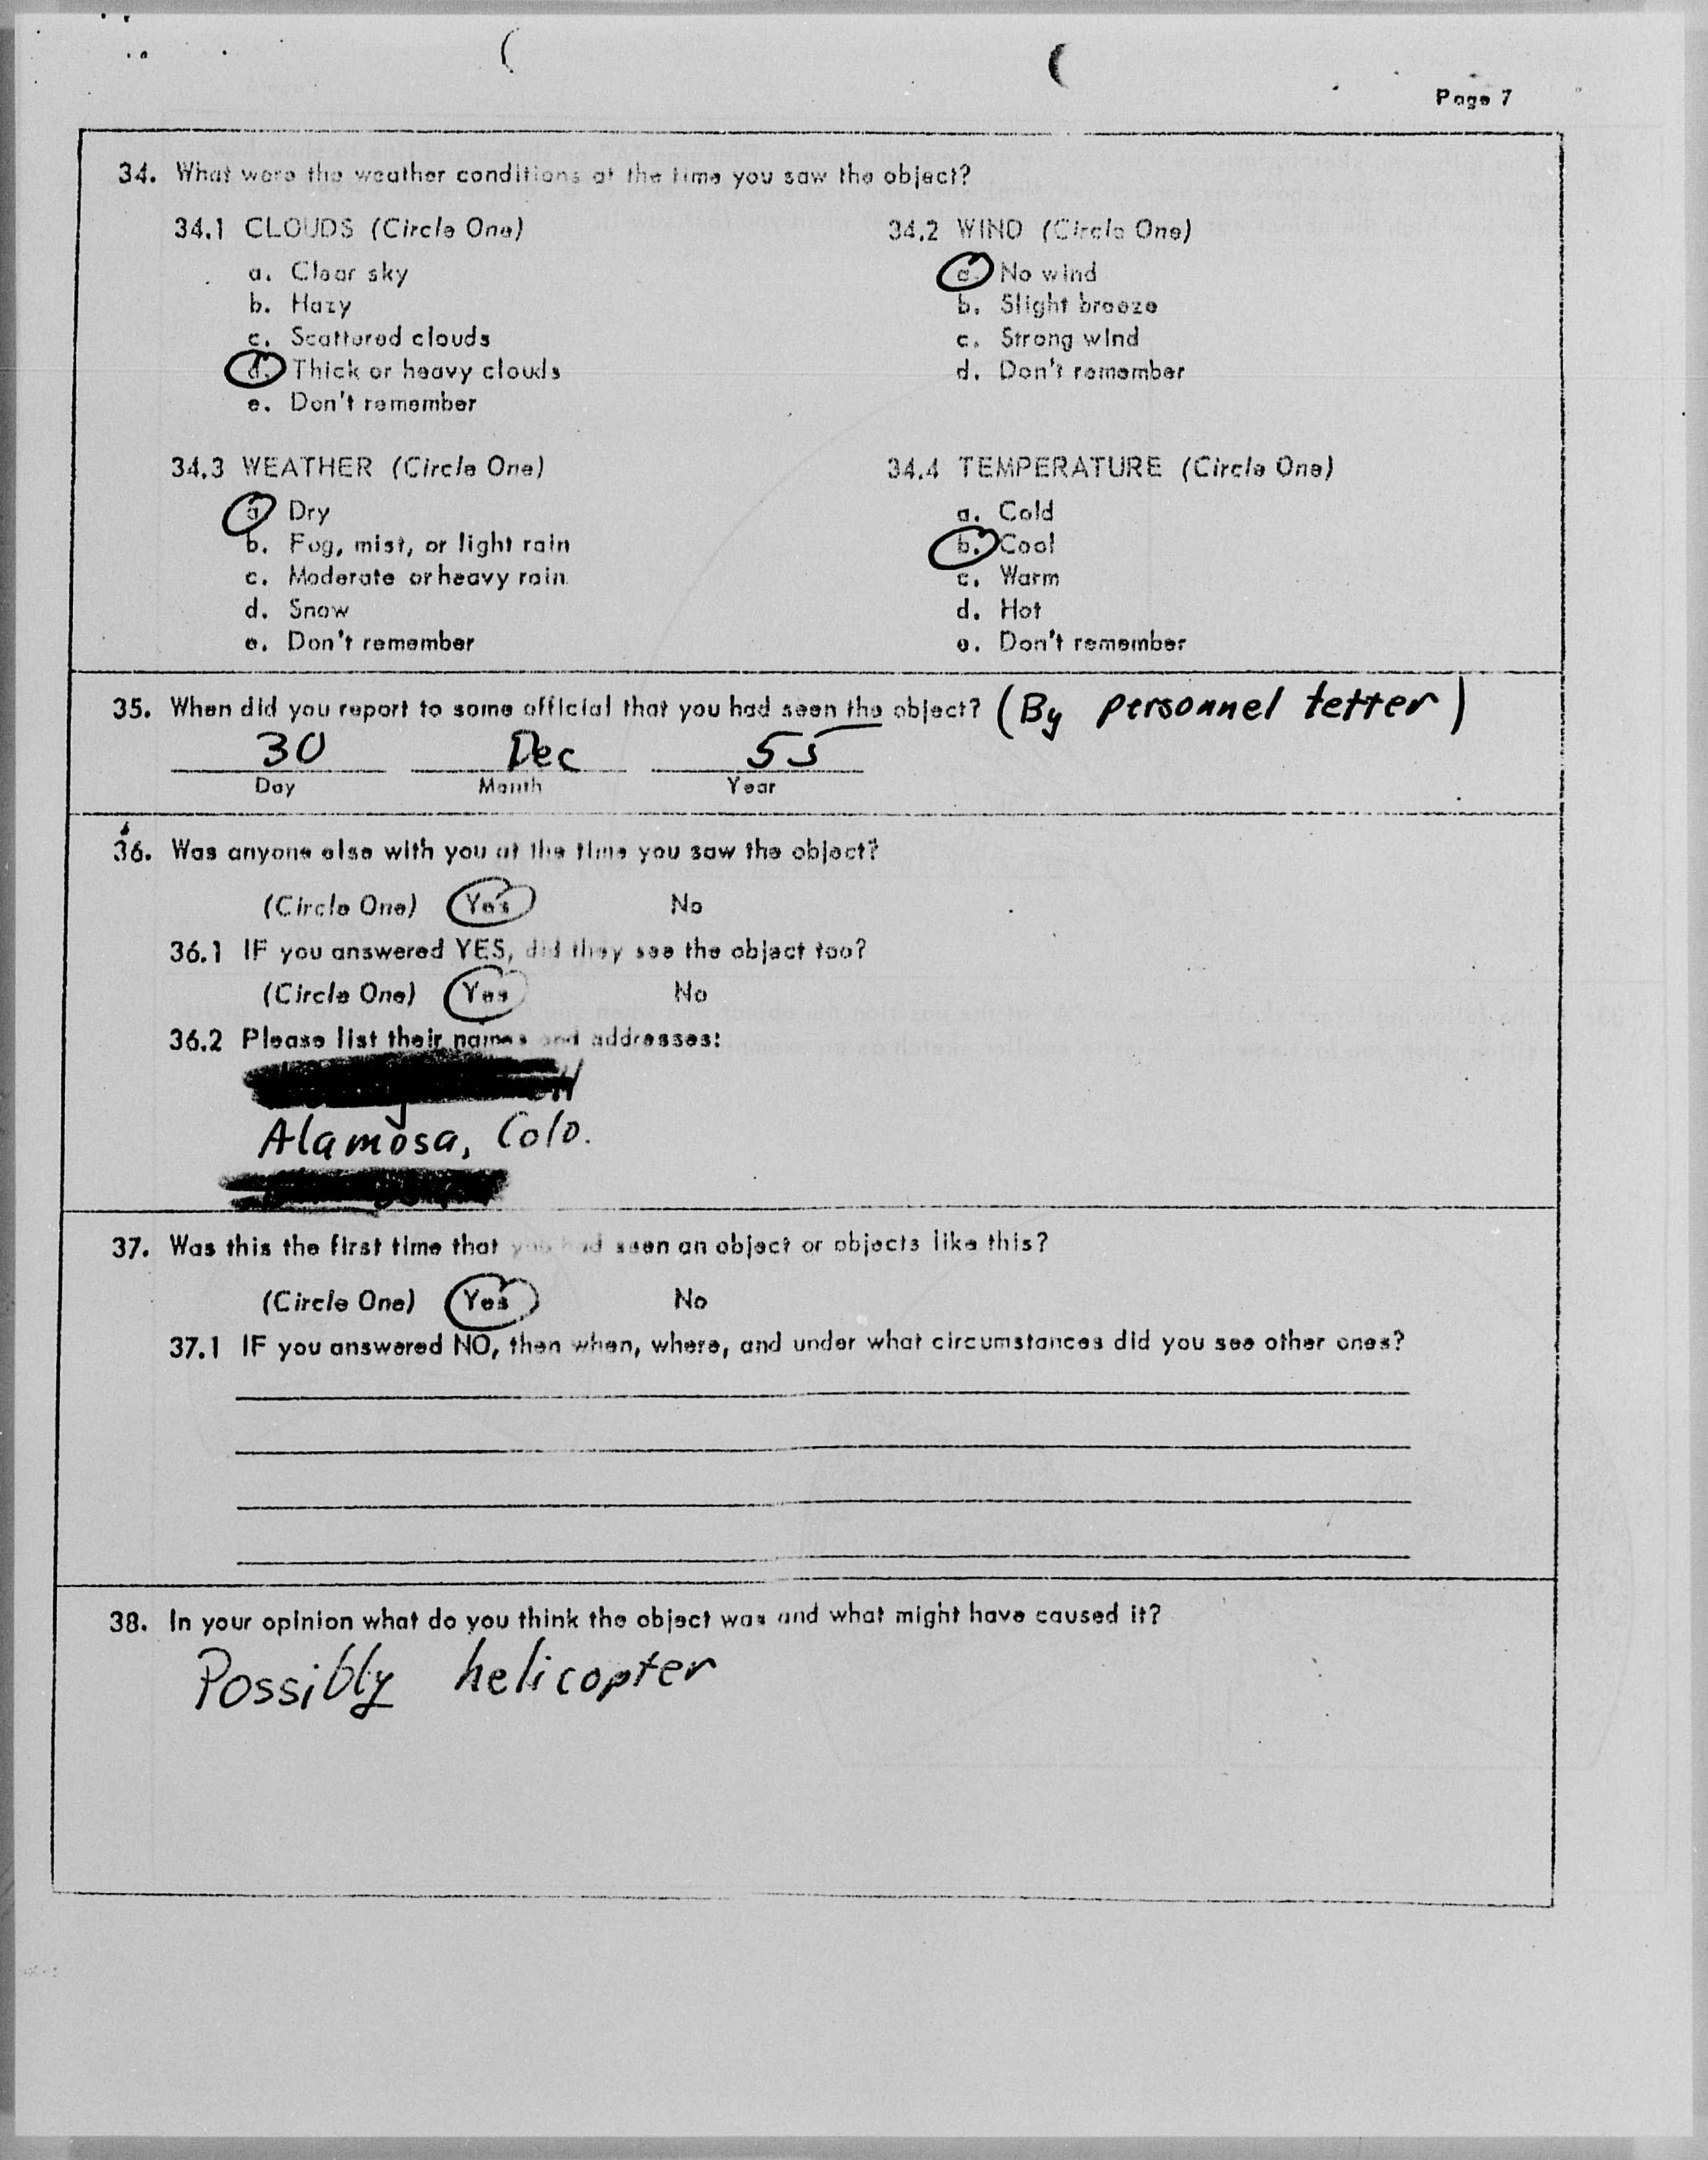 Page 7
34. What were the weather conditions at the time you saw the object?
34.1 CLOUDS (Circle One)
a. Clear sky
b. Hazy
c. Scattered clouds
d. Thick or heavy clouds
e. Don't remember
34.2 WIND (Circle One)
a. No wind
b. Slight breeze
c. Strong wind
d. Don't remember
34.3 WEATHER (Circle One)
a. Dry
b. Fog, mist, or light rain
c. Moderate or heavy rain
d. Snow
e. Don't remember
34.4 TEMPERATURE (Circle One)
a. Cold
b. Cool
c. Warm
d. Hot
e. Don't remember
35. When did you report to some official that you had seen the object? (By personnel letter)
30 Dec 55
Day Month Year
36. Was anyone else with you at the time you saw the object?
(Circle One) Yes No
36.1 IF you answered YES, did they see the object too?
(Circle One) Yes No
36.2 Please list their names and addresses:
Alamosa, Colo.
37. Was this the first time that you had seen an object or objects like this?
(Circle One) Yes No
37.1 IF you answered NO, then when, where, and under what circumstances did you see other ones?
38. In your opinion what do you think the object was and what might have caused it?
Possibly helicopter